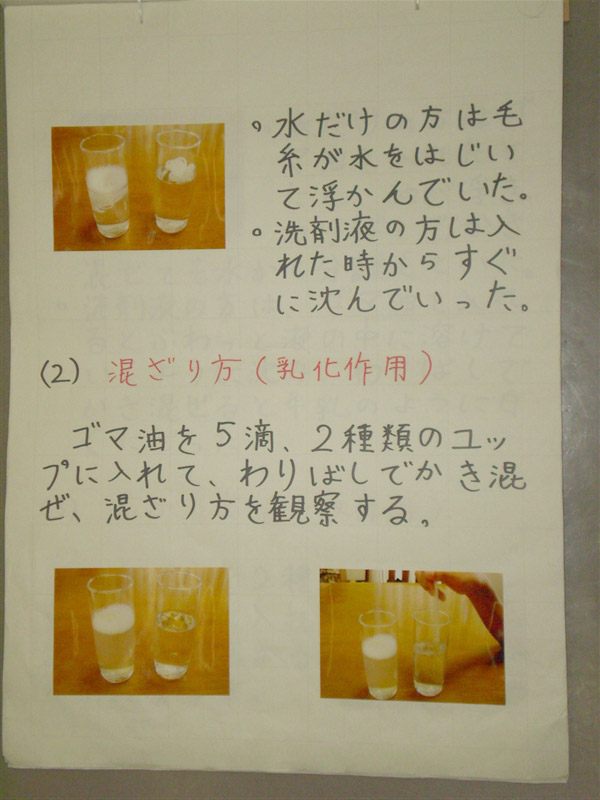 。水だけの方は毛
糸が水をはじい
て浮かんでいた。
。洗剤液の方は入
れた時からすぐ
に沈んでいった。
(2) 混ざり方(乳化作用)
ゴマ油を5滴、2種類のコッ
プに入れて、わりばしでかき混
ぜ、混ざり方を観察する。